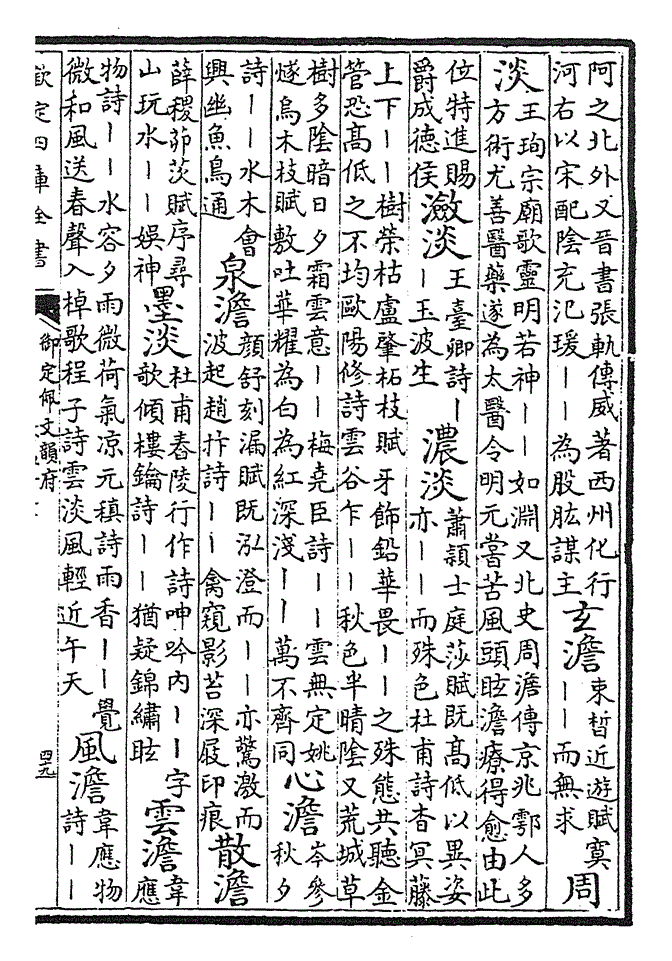 阿之北外又晉書張軌傳威著西州化行
河右以宋配陰充氾瑗丨丨為股肱謀主
玄澹
束皙近遊賦寞
丨丨而無求
周
淡
王珣宗廟歌靈明若神丨丨如淵又北史周澹傳京兆鄠人多
方術尤善醫藥遂為太醫令明元嘗苦風頭眩澹療得愈由此
位特進賜
爵成德侯
瀲淡
王臺卿詩丨
丨玉波生
濃淡
蕭頴士庭莎賦既高低以異姿
亦丨丨而殊色杜甫詩杳冥藤
上下丨丨樹榮枯盧肇柘枝賦 牙飾鉛華畏丨丨之殊態共聽金
管恐高低之不均歐陽修詩雲谷乍丨丨秋色半晴陰又荒城草
樹多陰暗日夕霜雲意丨丨梅堯臣詩丨丨雲無定姚
燧烏木枝賦敷吐華耀為白為紅深淺丨丨萬不齊同
心澹
岑參
秋夕
詩丨丨水木會
興幽魚鳥通
泉澹
顔舒刻漏賦既泓澄而丨丨亦驚激而
波起趙抃詩丨丨禽窺影苔深屐印痕
散澹
薛稷茆茨賦序尋
山玩水丨丨娯神
墨淡
杜甫舂陵行作詩呻吟內丨丨字
歌傾樓鑰詩丨丨猶疑錦繡眩
雲澹
韋
應
物詩丨丨水容夕雨微荷氣凉元稹詩雨香丨丨覺
微和風送春聲入棹歌程子詩雲淡風輕近午天
風澹
韋應物
詩丨丨
欽定四庫全書
御定佩文韻府
四九